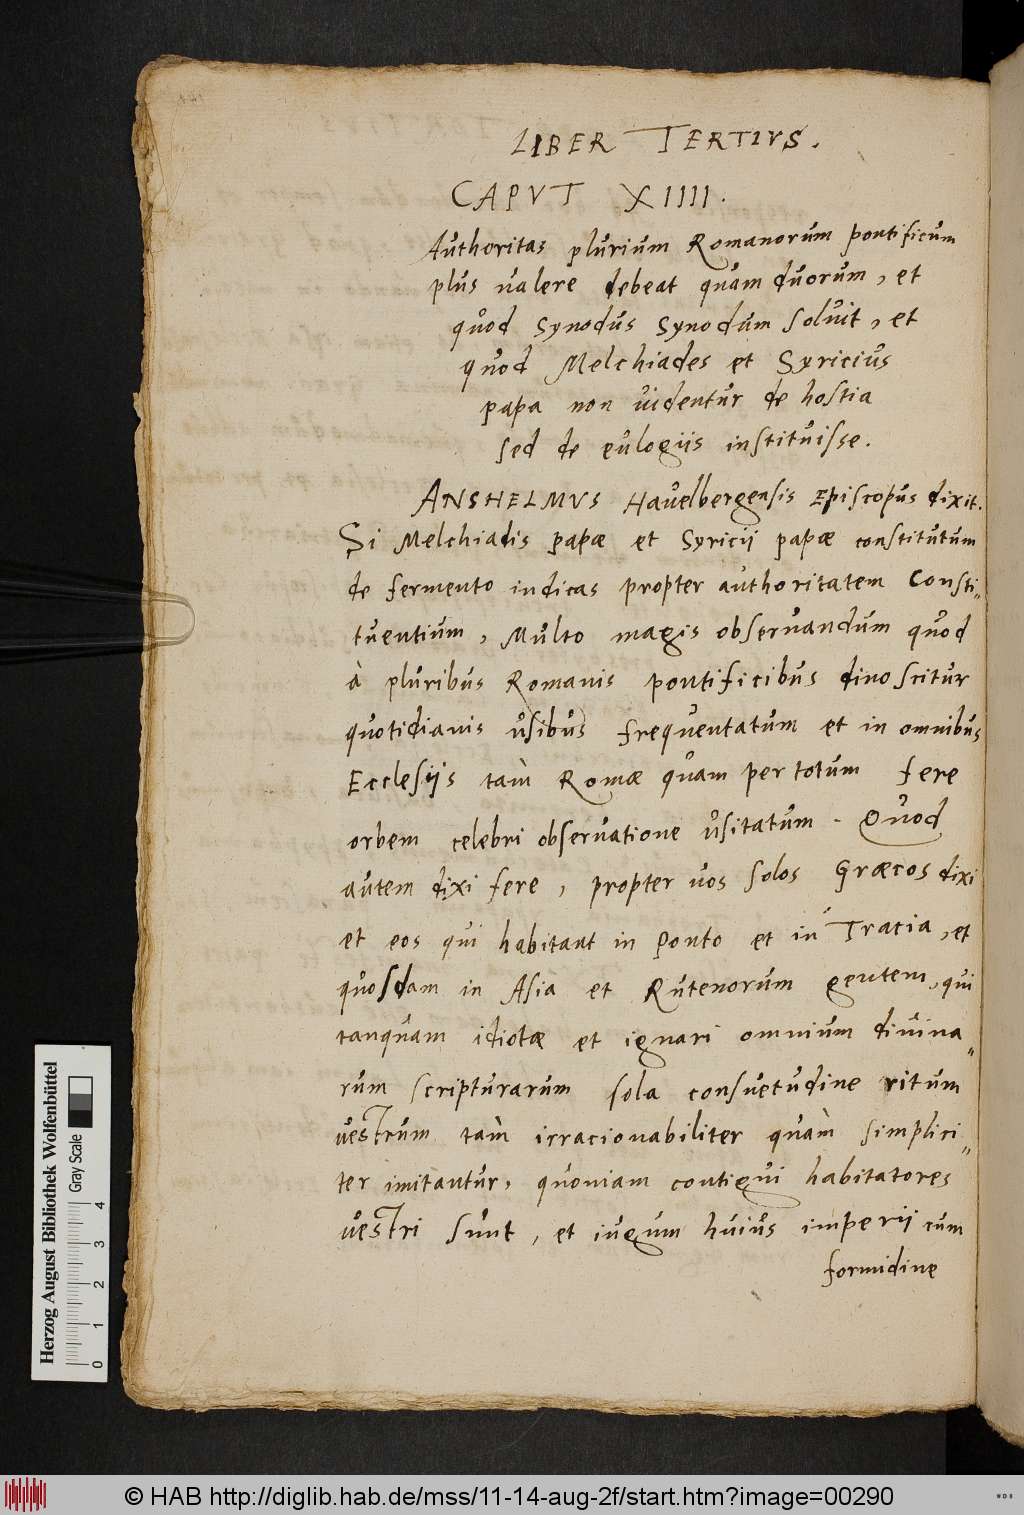 LIBER TERTIVS.
CAPVT XIIII.
Autheritas plurium Romanorum pontificum
plus valere debeat quam duorum, et
quod synodus synodum soluit, et
quod Melchiades et Syricius
papa non uidentur de hostia
sed de eulogiis instituisse.
ANSHELMVS Hauelbergensis Episcopus dixit.
Si Melchiadis papæ et Syricij papæ constitutum
de fermento indicas propter authoritatem Consti"
tuentium, Multo magis obseruandum quod
à pluribus Romanis pontificibus dinoscitur
quotidianis usibus frequentatum et in omnibus
Ecclesijs tam Romæ quam per totum fere
orbem celebri obseruatione usitatum. Quod
autem dixi fere, propter uos solos Græcos dixi
et eos qui habitant in Ponto et in Tracia, et
quosdam in Asia et Rutenorum gentem, qui
tanquam idiotæ et ignari omnium diuina"
rum scripturarum sola consuetudine ritum
vestrum tàm irracionabiliter quàm simplici"
ter imitantur, quoniam contigui habitatores
vestri sunt, et iugum huius imperij cum
formidine
Herzog August Bibliothek Wolfenbüttel
Gray Scale
0 1 2 3 4
© HAB http://diglib.hab.de/mss/11-14-aug-2f/start.htm?image=00290